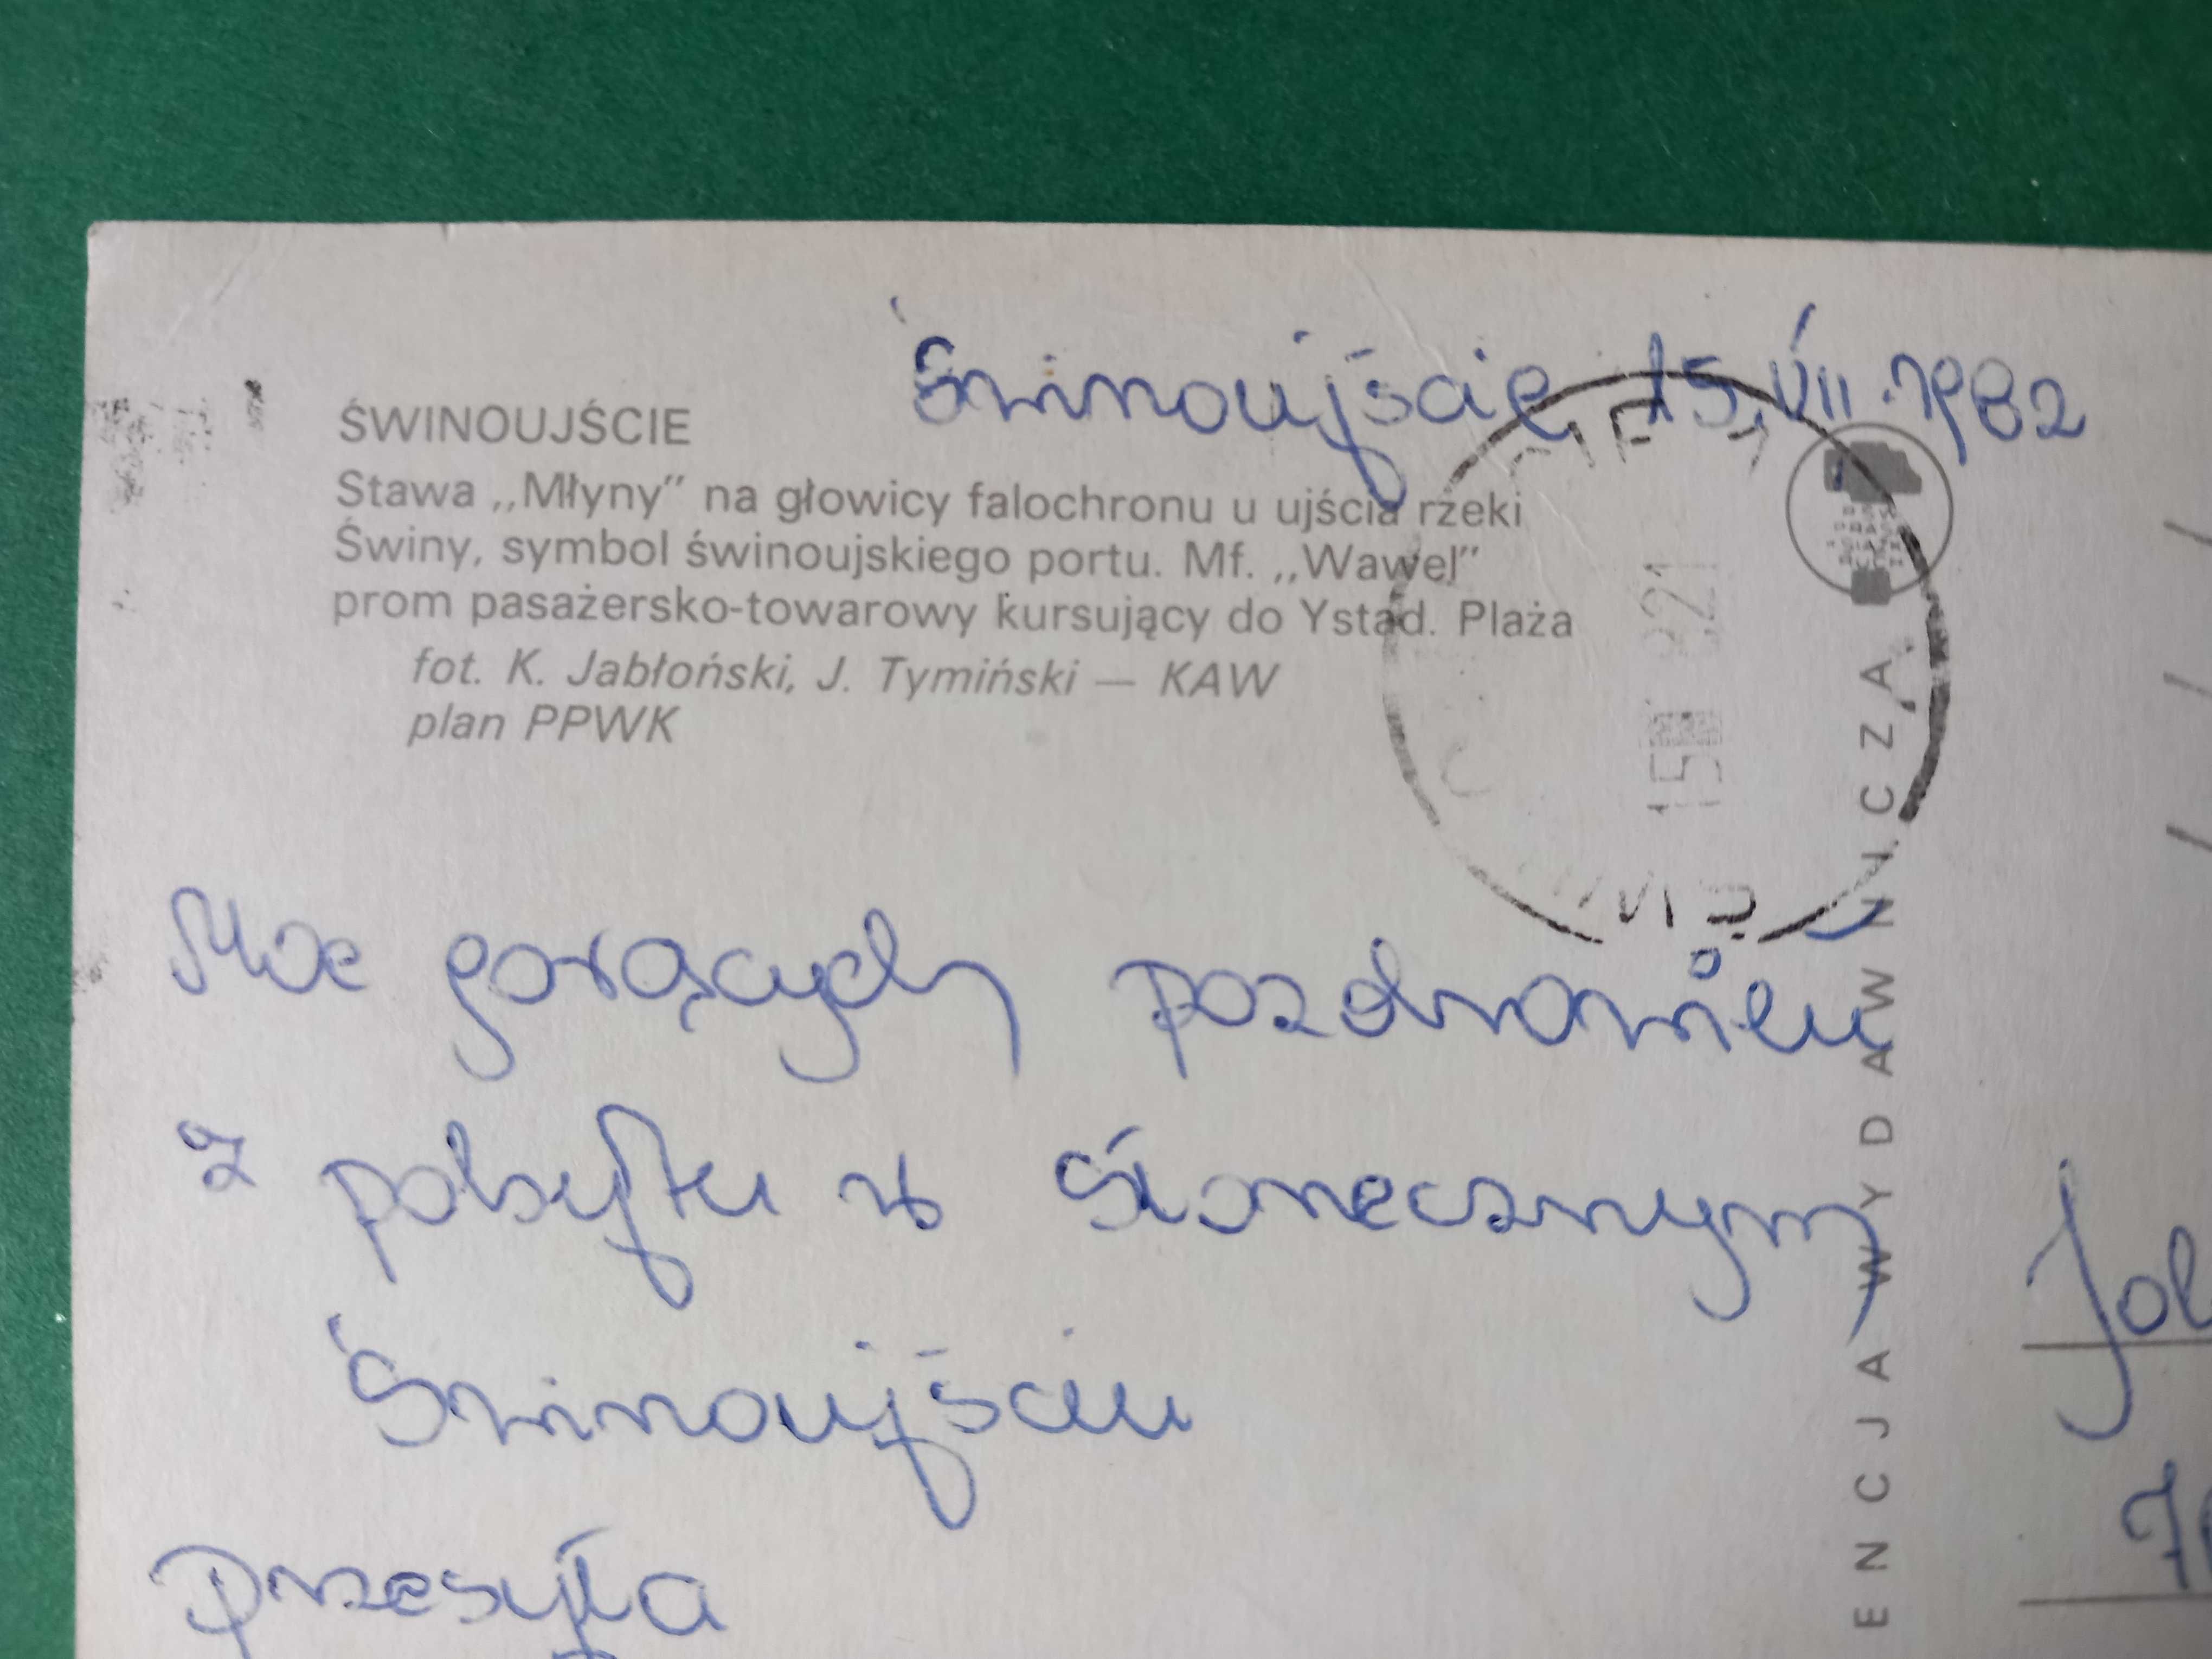 Świnoujście 15.VII.1982
ŚWINOUJŚCIE
Stawa „Młyny” na głowicy falochronu u ujścia rzeki
Świny, symbol świnoujskiego portu. Mf. „Wawel”
prom pasażersko-towarowy kursujący do Ystad. Plaża
fot. K. Jabłoński, J. Tymiński — KAW
plan PPWK
Moc gorących pozdrowień
z pobytu w słonecznym
Świnoujściu
przesyła
ENCJA WYDAWNICZA